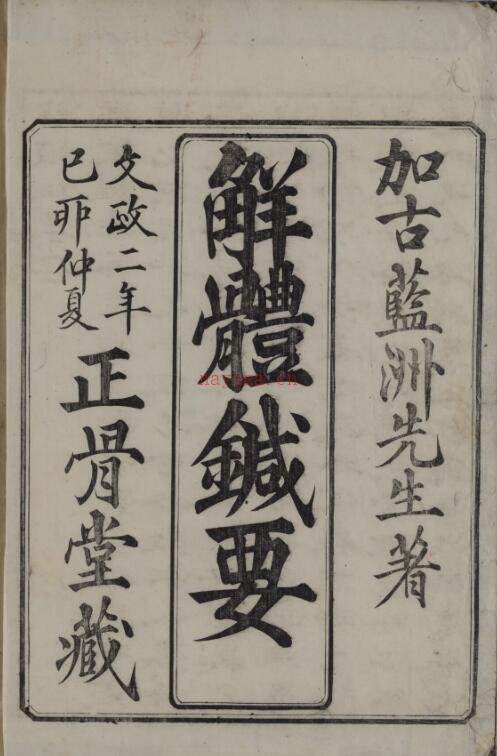 加古藍洲先生著
解體鍼要
文政二年
己卯仲夏
正骨堂藏